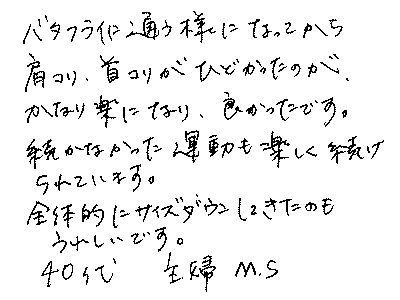 バタフライに通う様になってから
肩コリ、首コリがひどかったのが、
かなり楽になり、良かったです。
続かなかった運動も楽しく続け
られています。
全体的にサイズダウンしてきたのも
うれしいです。
40代 主婦 M.S